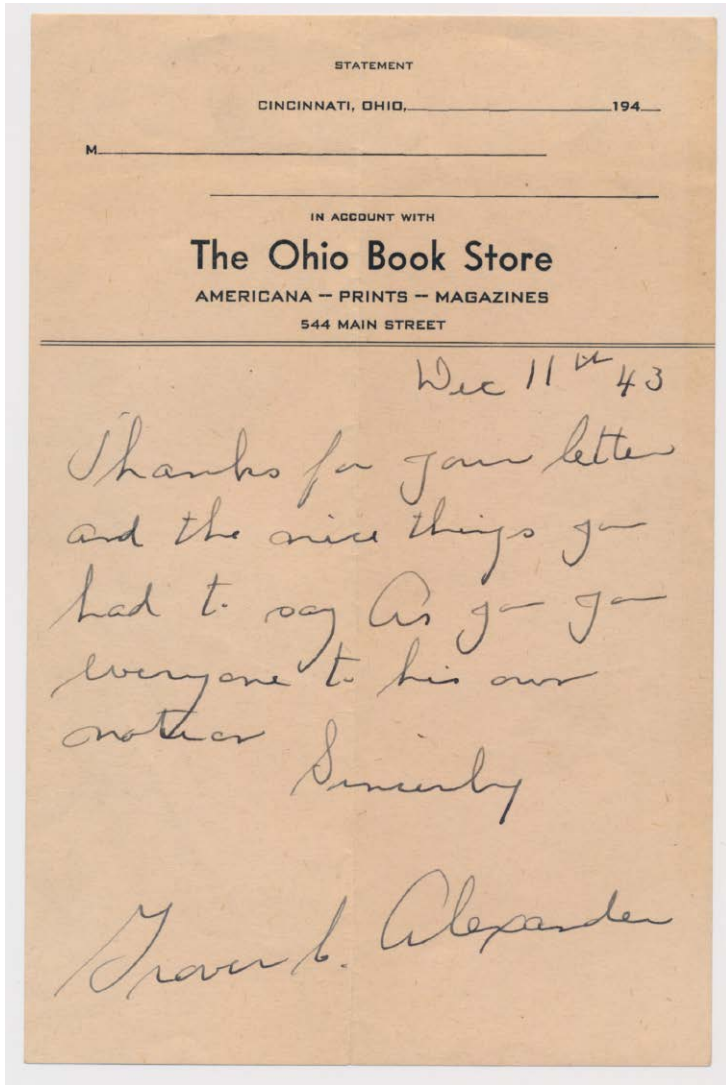 STATEMENT
CINCINNATI, OHIO, 194
M
IN ACCOUNT WITH
The Ohio Book Store
AMERICANA -- PRINTS -- MAGAZINES
544 MAIN STREET
Dec 11th 43
Thanks for your letter
and the nice things you
had to say As you
everyone to his own
Sincerely
Grover C. Alexander